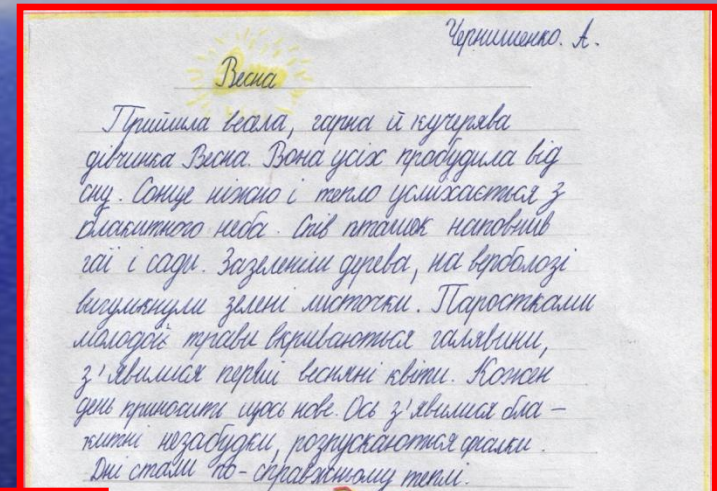 Чернишенко. А.
Весна
Прийшла весела, гарна й кучерява
дівчинка Весна. Вона усіх пробудила від
сну. Сонце ніжно і тепло усміхається з
блакитного неба. Спів пташек наповнив
гаї і сади. Зазеленіли дерева, на верболозі
вигулькнули зелені листочки. Паростками
молодої трави вкриваються галявини,
з'явилися перші весняні квіти. Кожен
день приносить щось нове. Ось з'явилися бла-
житні незабудки, розпускаються фіалки.
Дні стали по-справжньому теплі.